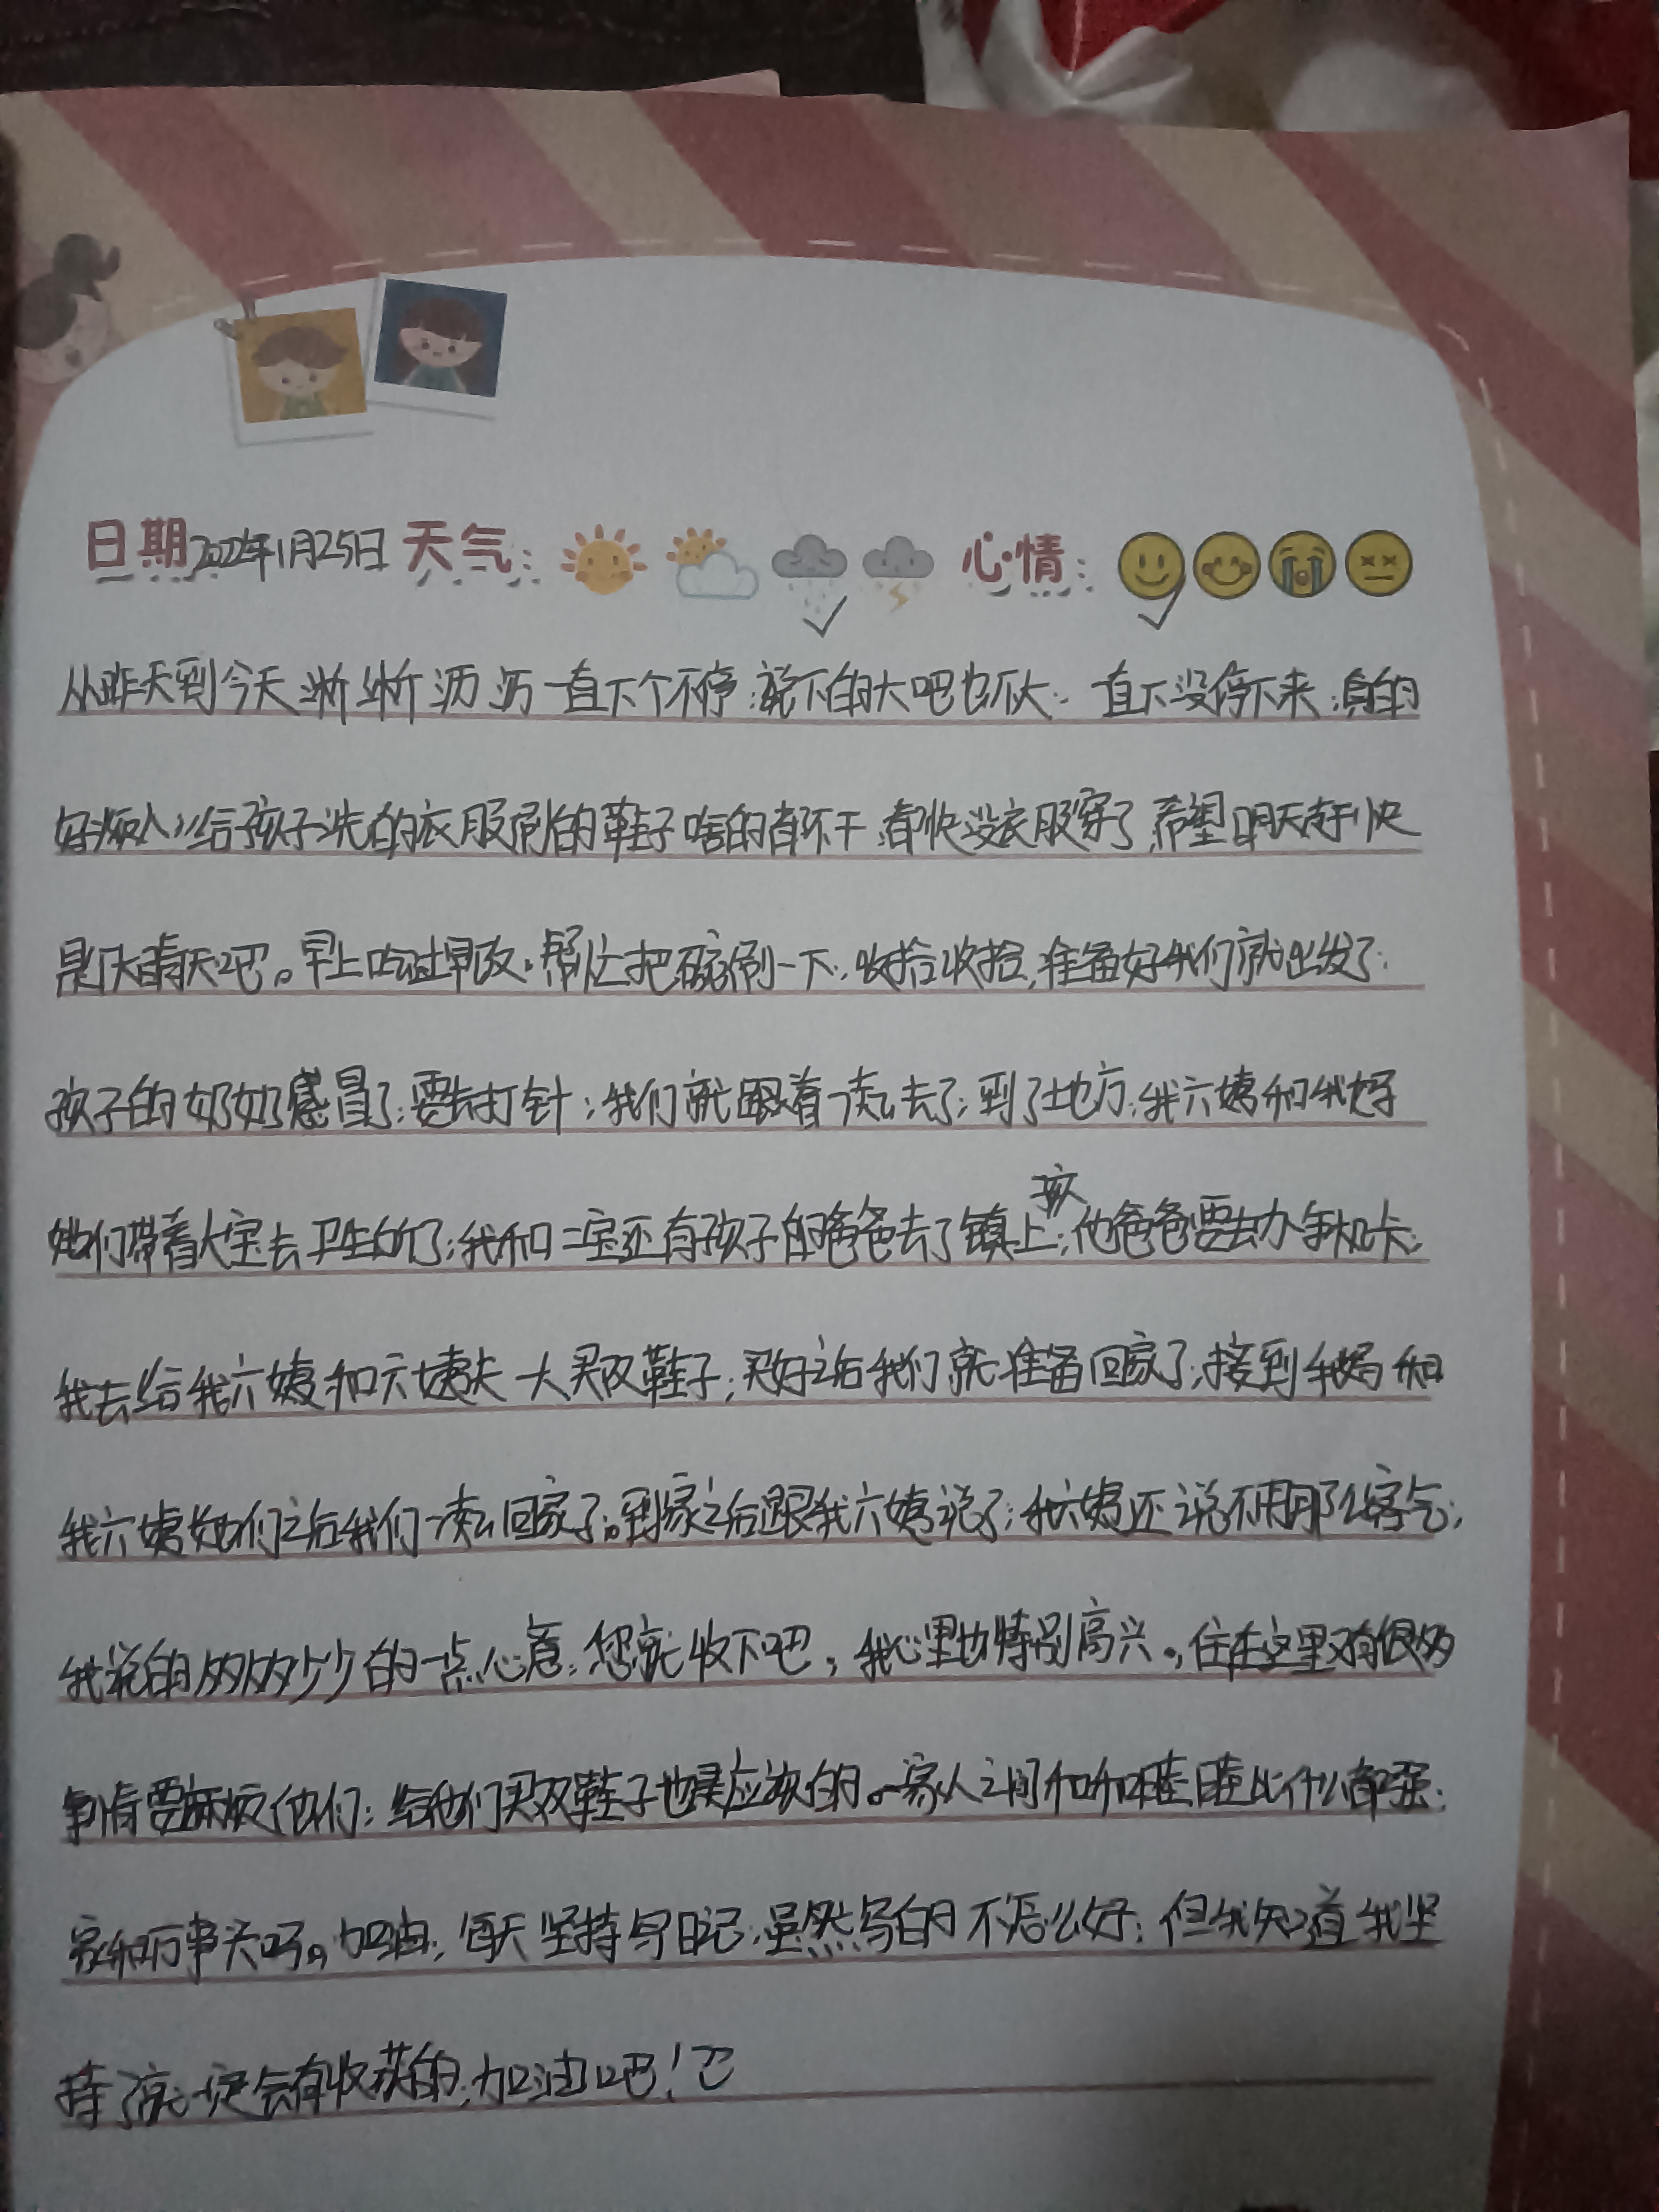 日期2022年1月25日 天气: 心情:
从昨天到今天淅淅沥沥一直下个不停,说下的大吧也不大,一直下没停下来,真的
好烦人,给孩子洗的衣服刷的鞋子啥的都不干,都快没衣服穿了,希望明天赶快
是个大晴天吧。早上吃过早饭,帮忙把碗刷一下,收拾收拾,准备好我们就出发了,
孩子的奶奶感冒了,要去打针,我们就跟着一块去了,到了地方,我六姨和我妈
她们带着大宝去卫生所了,我和二宝还有孩子的爸爸去了镇上,孩他爸爸要去办手机卡,
我去给我六姨和六姨夫一人买双鞋子,买好之后我们就准备回家了,接到我妈和
我六姨她们之后我们一块回家了。到家之后跟我六姨说了,我六姨还说不用那么客气,
我说的多多少少的一点心意,您就收下吧,我心里也特别高兴。,住在这里又有很多
事情要麻烦他们,给他们买双鞋子也是应该的。一家人之间和和睦睦比什么都强,
家和万事兴吗。加油,每天坚持写日记,虽然写的不怎么好,但我知道我坚
持了就一定会有收获的,加油吧!